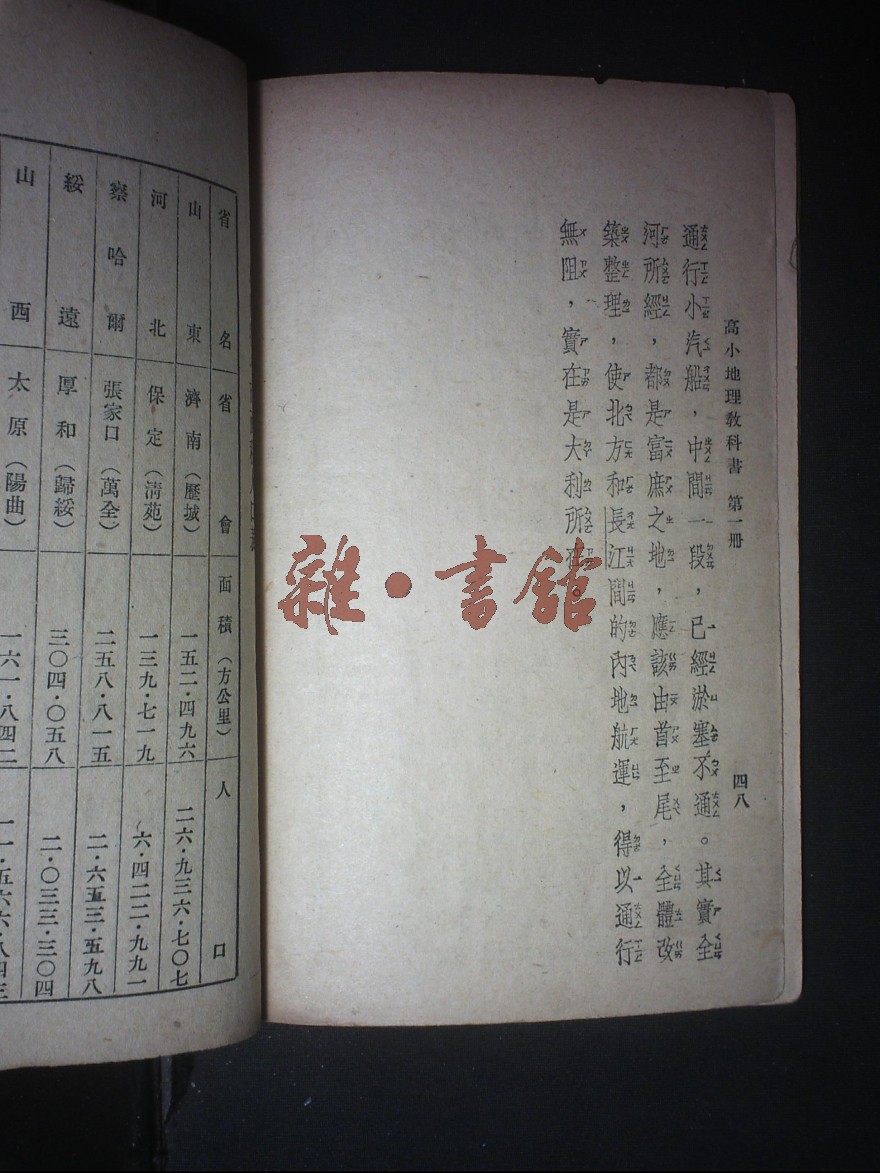 高小地理教科書　第一册
四八
通行小汽船，中間一段，已經淤塞不通。其實全
河所經，都是富庶之地，應該由首至尾，全體改
築整理，使北方和長江間的內地航運，得以通行
無阻，實在是大利所在。
雜·書館
省名 省會 面積（方公里） 人口
山東 濟南（歷城） 一五二·四九六 二六·九三六·七〇七
河北 保定（清苑） 一三九·七一九 六·四二二·九九一
察哈爾 張家口（萬全） 二五八·八一五 二·六五三·五九八
綏遠 厚和（歸綏） 三〇四·〇五八 二·〇三三·三〇四
山西 太原（陽曲） 一六一·八四二